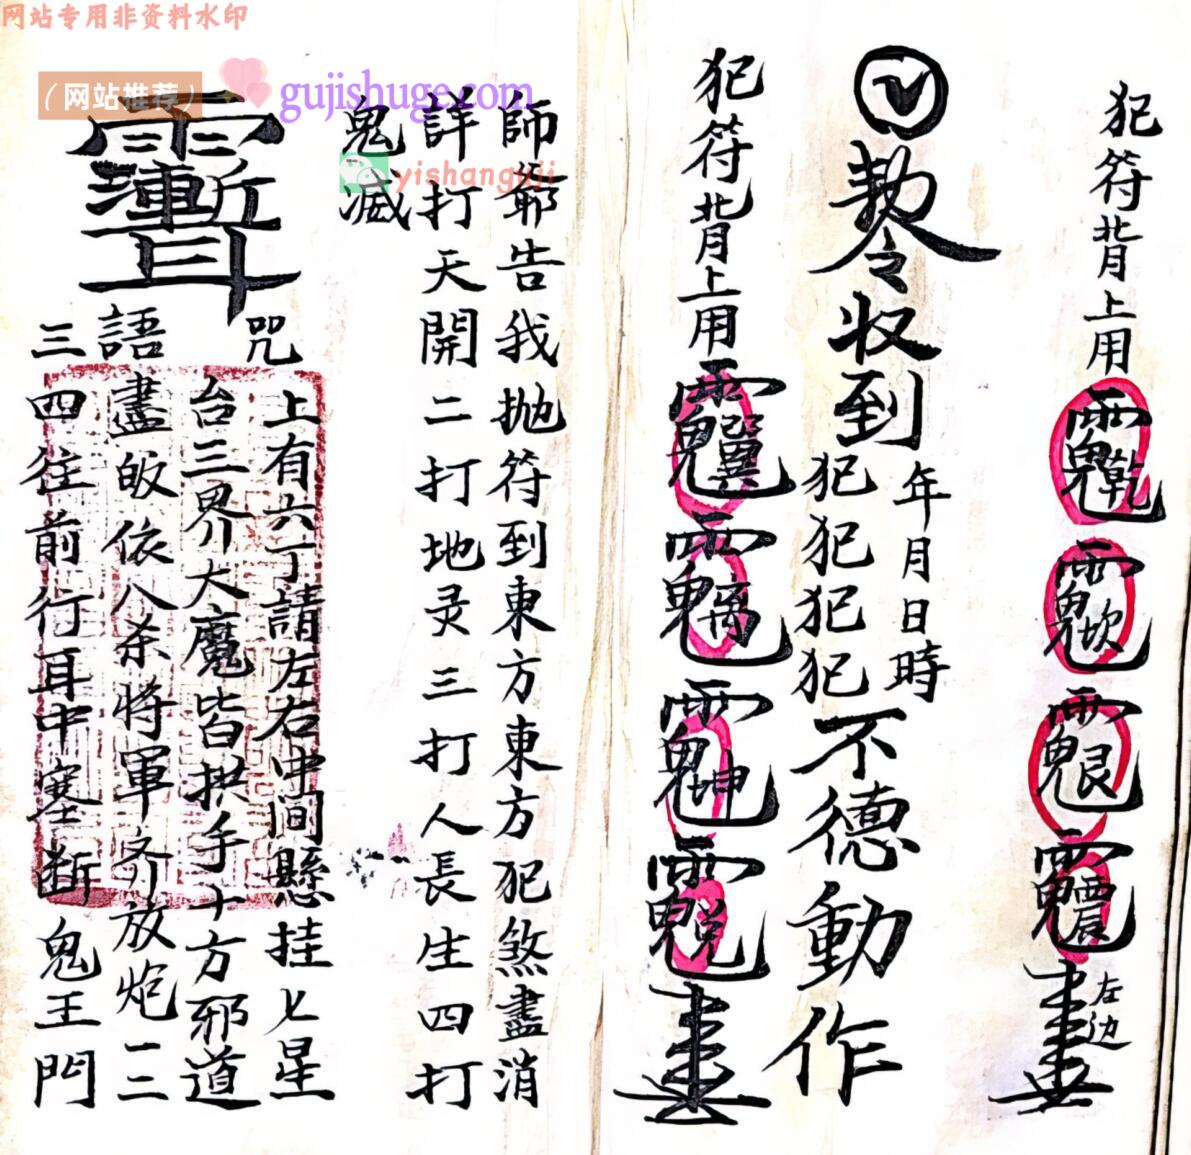 网站专用非资料水印
（网站推荐）
gujishuge.com
yishanguji
犯符背上用
左边
敕令收到
年月日時
犯犯犯犯
不德動作
犯符背上用
師爺告我抛符到東方東方犯煞盡消
詳打天開二打地灵三打人長生四打
鬼滅
咒
語
上有六丁請左右中间懸挂七星
台三界大魔皆拱手十方邪道
盡皈依八杀将軍齐放炮一二
三四往前行耳中塞断鬼王門